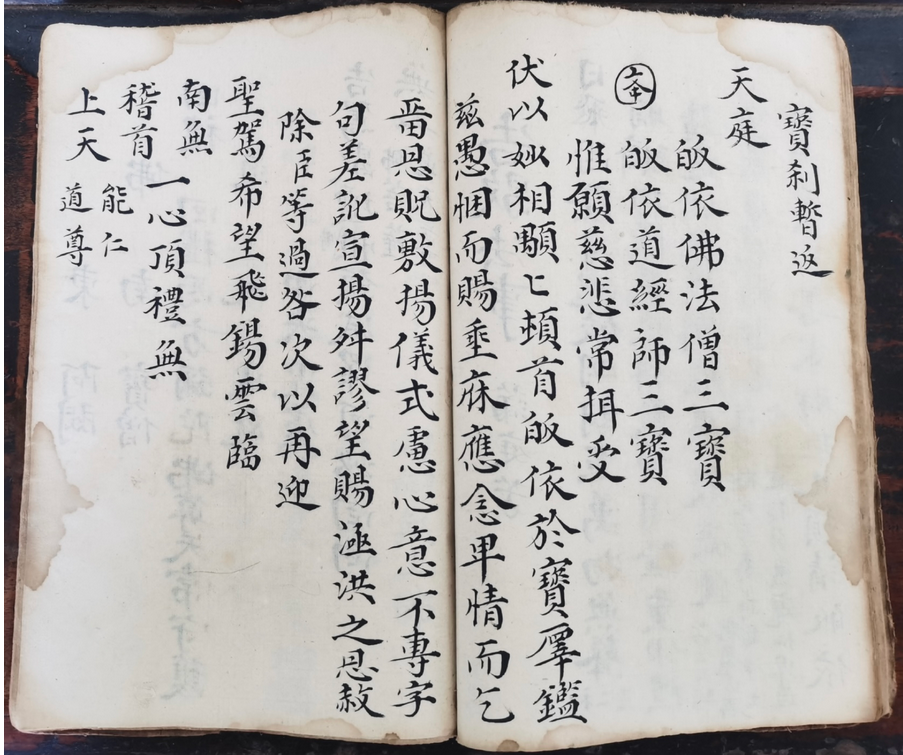 寶刹暫返
天庭
皈依佛法僧三寶
皈依道經師三寶
惟願慈悲常揖受
伏以玅相顒匕頓首皈依於寶鑑
兹愚悃而賜垂庥應念卑情而乞
畨恩貺敷揚儀式慮心意不專字
句差訛宣揚舛謬望賜洪之恩赦
除臣等過咎次以再迎
聖駕希望飛錫雲臨
南無
一心頂禮無
稽首
能仁
上天
道尊